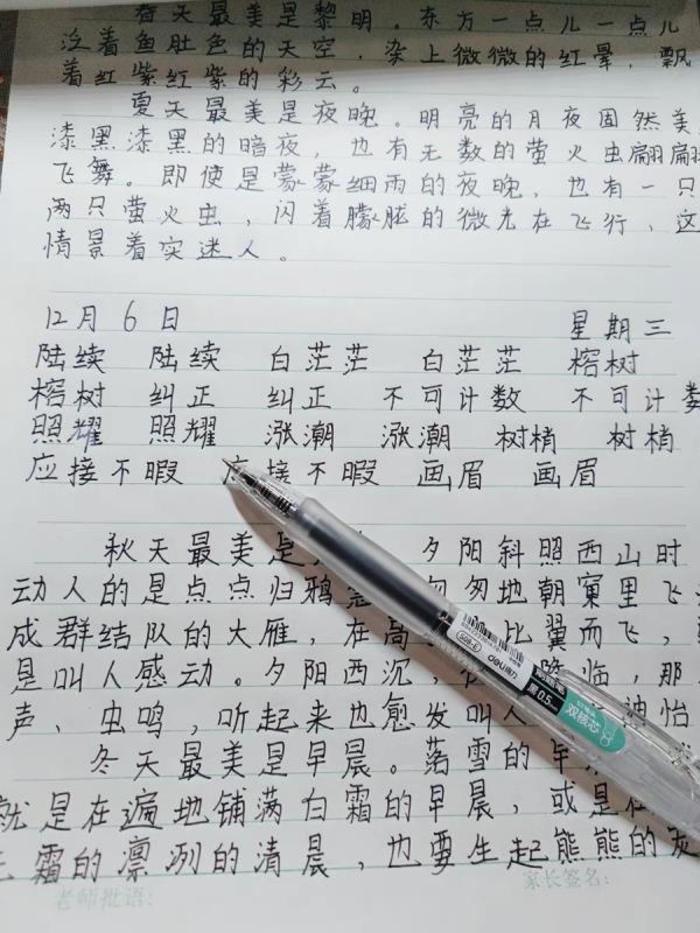 春天最美是黎明。东方一点儿一点儿
泛着鱼肚色的天空，染上微微的红晕，飘
着红紫红紫的彩云。
夏天最美是夜晚。明亮的月夜固然美
漆黑漆黑的暗夜，也有无数的萤火虫翩翩
飞舞。即使是蒙蒙细雨的夜晚，也有一只
两只萤火虫，闪着朦胧的微光在飞行，这
情景着实迷人。
12月6日 星期三
陆续 陆续 白茫茫 白茫茫 榕树
榕树 纠正 纠正 不可计数 不可计数
照耀 照耀 涨潮 涨潮 树梢 树梢
应接不暇 应接不暇 画眉 画眉
秋天最美是 夕阳斜照西山时
动人的是点点归鸦急 匆匆地朝窠里飞
成群结队的大雁，在高 比翼而飞，
是叫人感动。夕阳西沉， 临，那
声、虫鸣，听起来也愈发叫人 神怡
冬天最美是早晨。落雪的早
就是在遍地铺满白霜的早晨，或是在
霜的凛冽的清晨，也要生起熊熊的炭
老师批语： 家长签名：
S08-E deli得力
黑0.5
双核芯